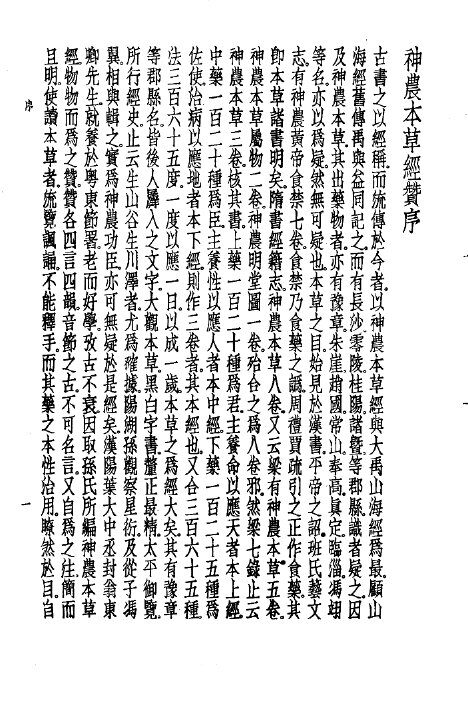 神農本草經贊序
古書之以經稱而流傳於今者以神農本草經與大禹山海經爲最顧山
海經舊傳禹與益同記之而有長沙零陵桂陽諸暨等郡縣識者疑之因
及神農本草其出藥物者亦有豫章朱崖趙國常山奉高真定臨淄馮翊
等名亦以爲疑然無可疑也本草之目始見於漢書平帝之詔班氏藝文
志有神農黃帝食禁七卷食禁乃食藥之譌周禮賈疏引之正作食藥其
卽本草諸書明矣隋書經籍志神農本草八卷又云梁有神農本草五卷
神農本草屬物二卷神農明堂圖一卷殆合之爲八卷邪然梁七錄止云
神農本草三卷核其書上藥一百二十種爲君主養命以應天者本上經
中藥一百二十種爲臣主養性以應人者本中經下藥一百二十五種爲
佐使治病以應地者本下經則作三卷者其本經也又合三百六十五種
法三百六十五度一度以應一日以成一歲本草之爲經大矣其有豫章
等郡縣名皆後人羼入之文字大觀本草黑白字書釐正最精太平御覽
所行經史止云生山谷生川澤者尤爲確據陽湖孫觀察星衍及從子馮
翼相與輯之實爲神農功臣亦可無疑於是經矣漢陽葉大中丞封翁東
卿先生就養於粵東節署老而好學攷古不衰因取孫氏所編神農本草
經物物而爲之贊贊各四言四韻音節之古不可名言又自爲之注簡而
且明使讀本草者流覽諷誦不能釋手而其藥之本性治用瞭然於目自
序
一